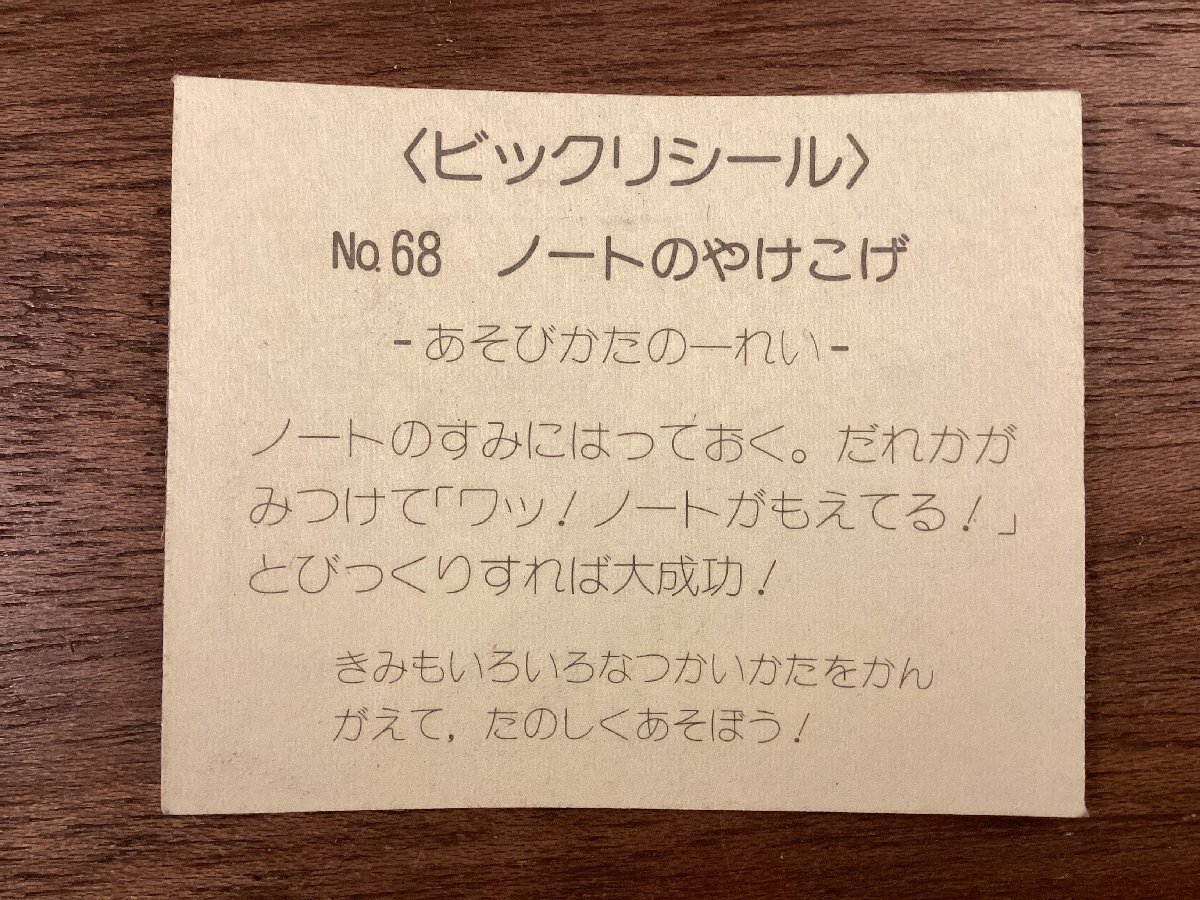 〈ビックリシール〉
No.68 ノートのやけこげ
-あそびかたの一れい-
ノートのすみにはっておく。だれかが
みつけて「ワッ!ノートがもえてる!」
とびっくりすれば大成功!
きみもいろいろなつかいかたをかん
がえて,たのしくあそぼう!